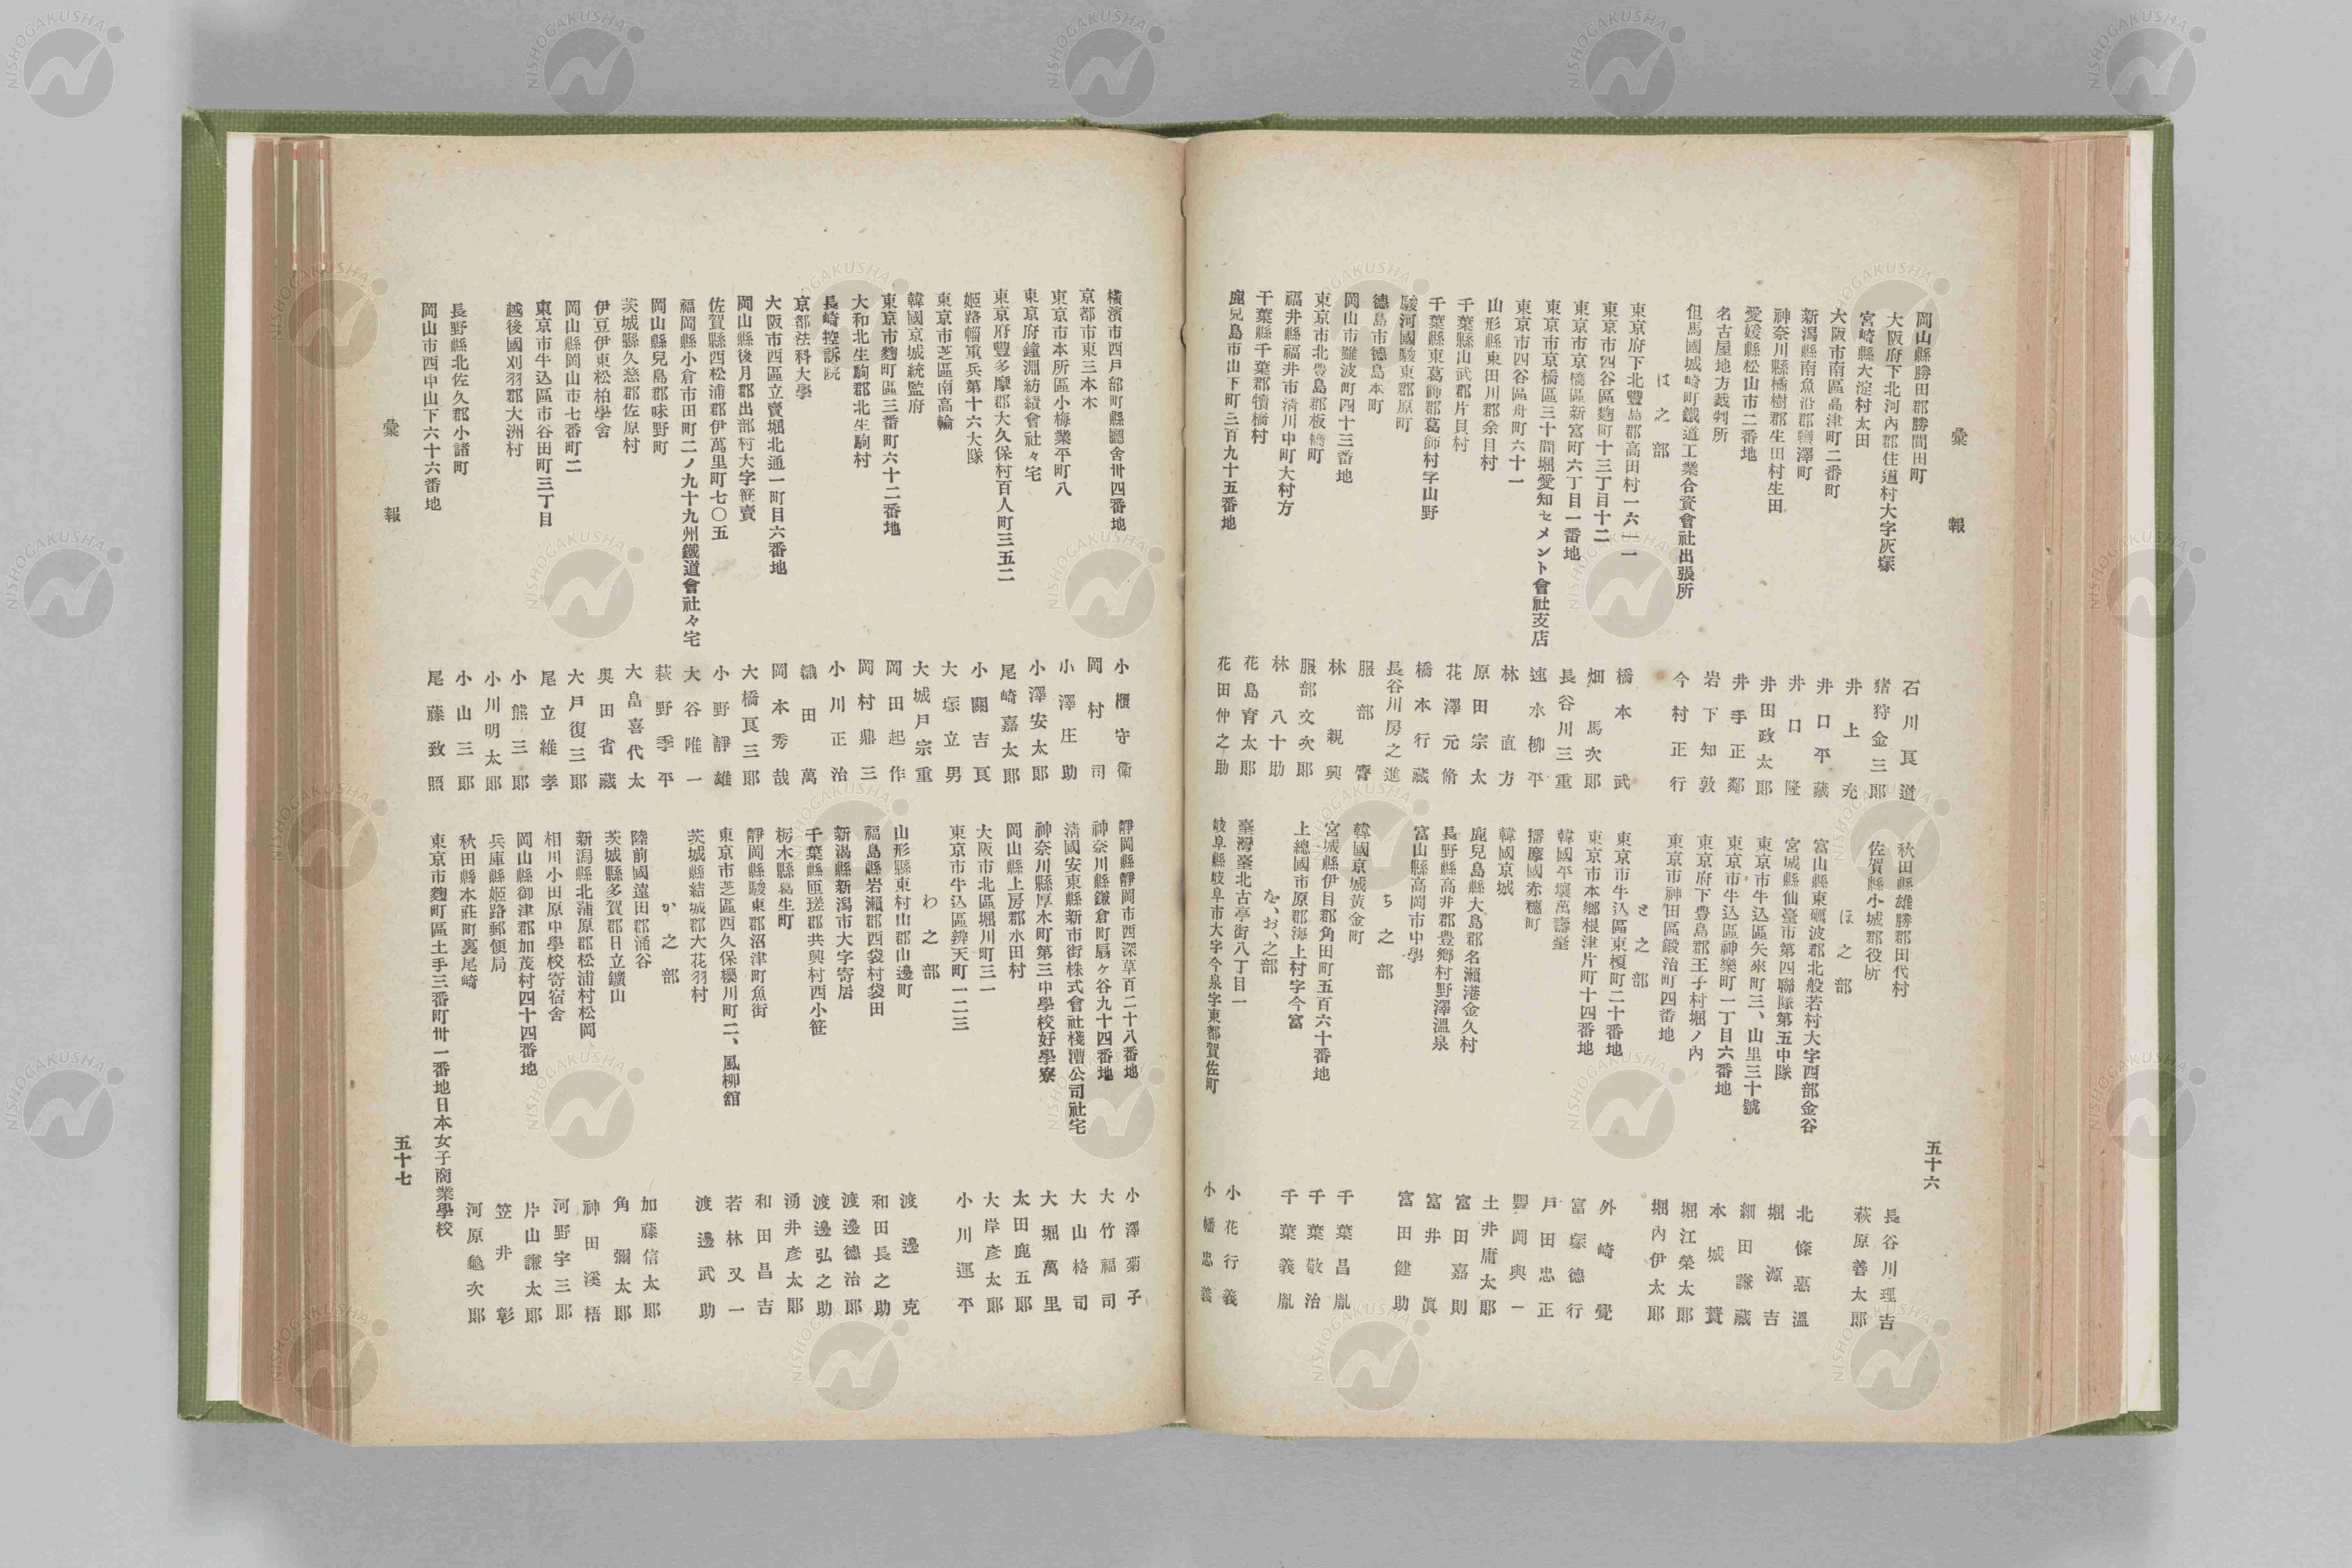 彙報
岡山縣勝田郡勝間田町 石川良道
大阪府下北河內郡住道村大字灰塚 猪狩金三郎
宮崎縣大淀村太田 井上充
大阪市南區高津町二番町 井口平藏
新潟縣南魚沼郡鹽澤町 井口隆
神奈川縣橘樹郡生田村生田 井田政太郎
愛媛縣松山市二番地 井手正鄰
名古屋地方裁判所 岩下知敦
但馬國城崎町鐵道工業合資會社出張所 今村正行
は之部
東京府下北豐島郡高田村一六一一 橋本武
東京市四谷區麴町十三丁目十二 畑馬次郎
東京市京橋區新富町六丁目一番地 長谷川三重
東京市京橋區三十間堀愛知セメント會社支店 速水柳平
東京市四谷區舟町六十一 林直方
山形縣東田川郡余目村 原田宗太
千葉縣山武郡片貝村 花澤元脩
千葉縣東葛飾郡葛飾村字山野 橋本行藏
駿河國駿東郡原町 長谷川房之進
德島市德島本町 服部齊
岡山市難波町四十三番地 林親興
東京市北豊島郡板橋町 服部文次郎
福井縣福井市淸川中町大村方 林八十助
千葉縣千葉郡犢橋村 花島育太郎
鹿兒島市山下町三百九十五番地 花田仲之助
秋田縣雄勝郡田代村 長谷川理吉
佐賀縣小城郡役所 萩原善太郎
ほ之部
富山縣東礪波郡北般若村大字西部金谷 北條惪溫
宮城縣仙臺市第四聯隊第五中隊 堀源吉
東京市牛込區矢來町三、山里三十號 細田謙藏
東京市牛込區神樂町一丁目六番地 本城蕡
東京府下豊島郡王子村堀ノ內 堀江榮太郎
東京市神田區鍛冶町四番地 堀內伊太郎
と之部
東京市牛込區東榎町二十番地 外崎覺
東京市本鄕根津片町十四番地 富塚德行
韓國平壤萬壽臺 戶田忠正
播摩國赤穗町 豐岡與一
韓國京城 土井庸太郎
鹿兒島縣大島郡名瀨港金久村 富田嘉則
長野縣高井郡豊鄕村野澤溫泉 富井眞
富山縣高岡市中學 富田健助
ち之部
韓國京城黃金町 千葉昌胤
宮城縣伊目郡角田町五百六十番地 千葉敬治
上總國市原郡海上村字今富 千葉義胤
を、お、之部
臺灣臺北古亭街八丁目一 小花行義
岐阜縣岐阜市大字今泉字東都賀佐町 小幡忠義
五十六
橫濱市西戶部町縣廳舍卅四番地 小櫃守衛
京都市東三本木 岡村司
東京市本所區小梅業平町八 小澤庄助
東京府鐘淵紡績會社々宅 小澤安太郎
東京府豐多摩郡大久保村百人町三五二 尾崎嘉太郎
姬路輜重兵第十六大隊 小關吉良
東京市芝區南高輪 大塚立男
韓國京城統監府 大城戶宗重
東京市麴町區三番町六十二番地 岡田起作
大和北生駒郡北生駒村 岡村鼎三
長崎控訴院 小川正治
京都法科大學 織田萬
大阪市西區立賣堀北通一町目六番地 岡本秀哉
岡山縣後月郡出部村大字笹賣 大橋良三郎
佐賀縣西松浦郡伊萬里町七〇五 小野靜雄
福岡縣小倉市田町二ノ九十九州鐵道會社々宅 大谷唯一
岡山縣兒島郡味野町 萩野季平
茨城縣久慈郡佐原村 大畠喜代太
伊豆伊東松柏學舍 奧田省藏
岡山縣岡山市七番町二 大戶復三郎
東京市牛込區市谷田町三丁目 尾立維孝
越後國刈羽郡大洲村 小熊三郎
小川明太郎
長野縣北佐久郡小諸町 小山三郎
岡山市西中山下六十六番地 尾藤致照
靜岡縣靜岡市西深草百二十八番地 小澤菊子
神奈川縣鎌倉町扇ヶ谷九十四番地 大竹福司
淸國安東縣新市街株式會社棧漕公司社宅 大山格司
神奈川縣厚木町第三中學校好學寮 大堀萬里
岡山縣上房郡水田村 太田鹿五郎
大阪市北區堀川町三一 大岸彥太郎
東京市牛込區辨天町一二三 小川運平
わ之部
山形縣東村山郡山邊町 渡邊克
福島縣岩瀨郡西袋村袋田 和田長之助
新潟縣新潟市大字寄居 渡邊德治郎
千葉縣匝瑳郡共興村西小笹 渡邊弘之助
栃木縣葛生町 湧井彥太郎
靜岡縣駿東郡沼津町魚街 和田昌吉
東京市芝區西久保櫻川町二、風柳舘 若林又一
茨城縣結城郡大花羽村 渡邊武助
か之部
陸前國遠田郡涌谷 加藤信太郎
茨城縣多賀郡日立鑛山 角彌太郎
新潟縣北蒲原郡松浦村松岡 神田溪梧
相川小田原中學校寄宿舍 河野宇三郎
岡山縣御津郡加茂村四十四番地 片山謙太郎
兵庫縣姬路郵便局 笠井彰
秋田縣本莊町裏尾崎 河原龜次郎
東京市麴町區土手三番町卅一番地日本女子商業學校
彙報
五十七